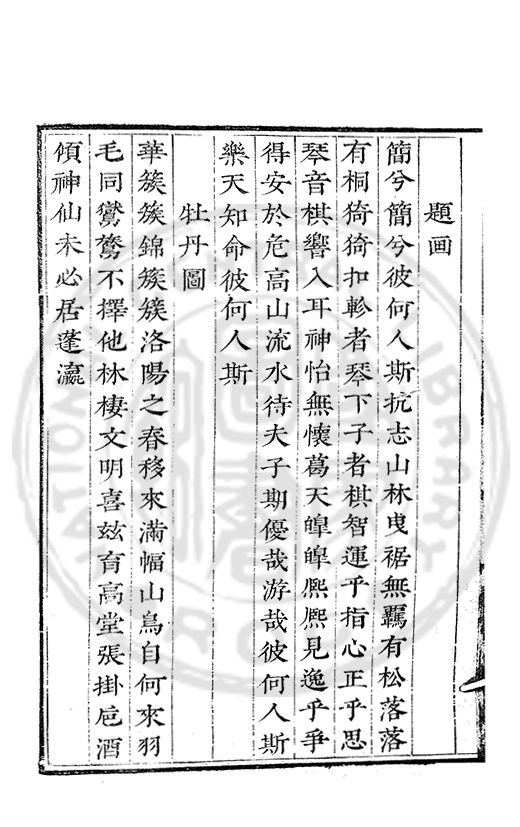 題画
簡兮簡兮彼何人斯抗志山林曵裾無羈有松落落
有桐猗猗扣軫者琴下子者棋智運乎指心正乎思
琴音棋響入耳神怡無懷葛天皡皡熈熈見逸乎爭
得安於危高山流水待夫子期優哉游哉彼何人斯
樂天知命彼何人斯
牡丹圖
華簇簇錦簇簇洛陽之春移來滿幅山鳥自何來羽
毛同鸑鷟不擇他林棲文明喜玆育高堂張掛巵酒
傾神仙未必居蓬瀛